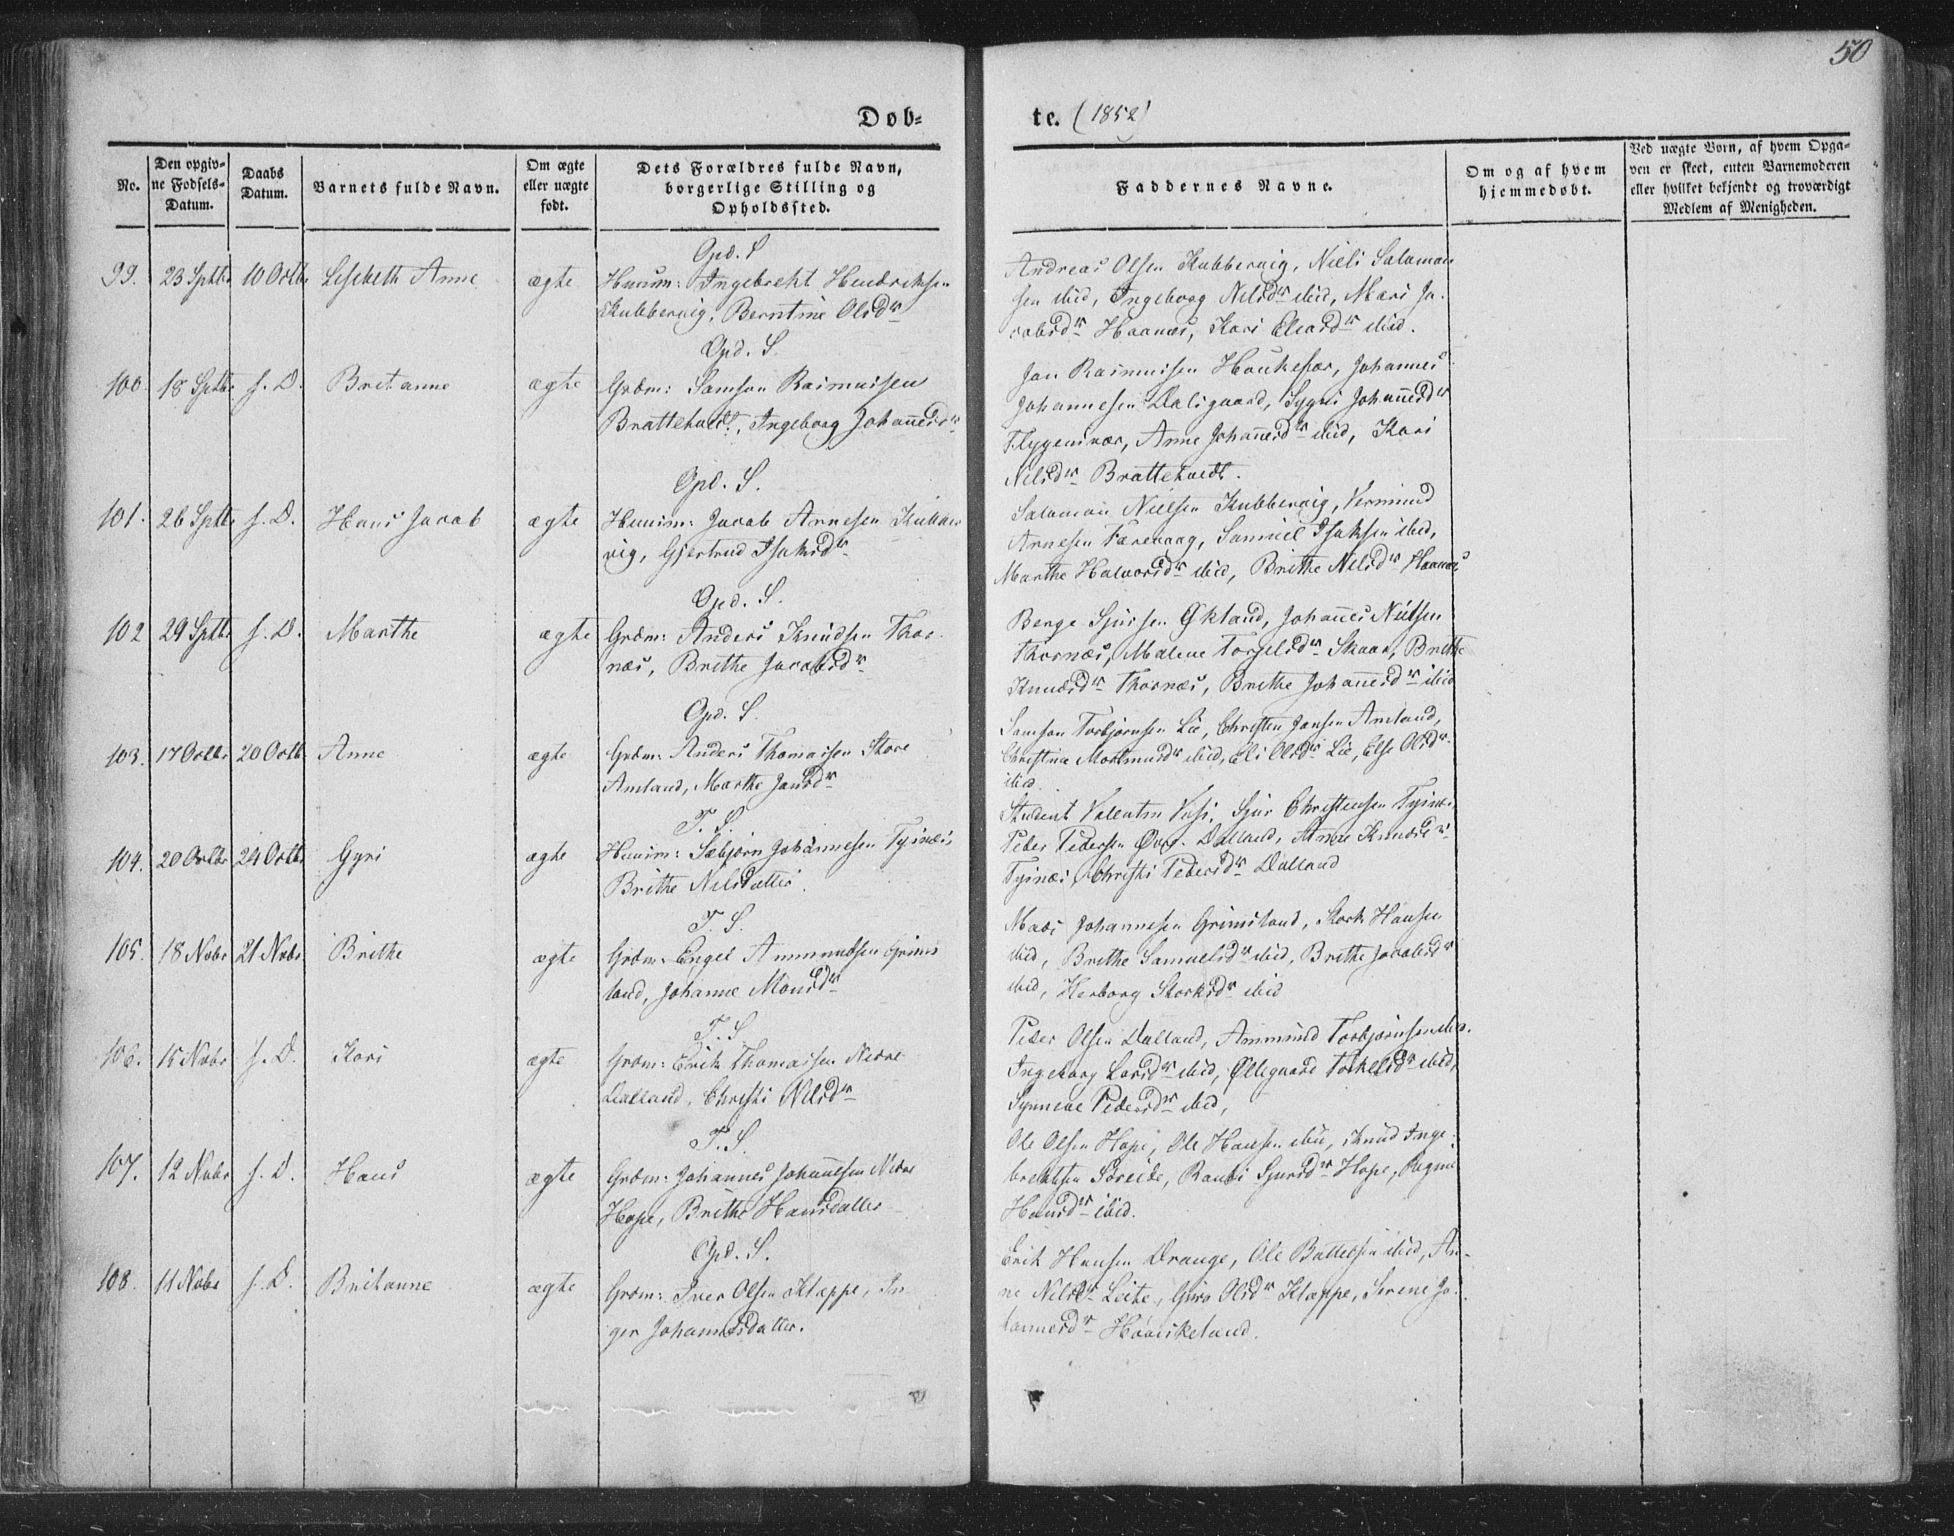 50
Døb-
te. (1852)
No.
Den opgiv-
ne Fødsels-
Datum.
Daabs
Datum.
Barnets fulde Navn.
Om ægte
eller uægte
født.
Dets Forældres fulde Navn,
borgerlige Stilling og
Opholdssted.
Faddernes Navne.
Om og af hvem
hjemmedøbt.
Ved uægte Børn, af hvem Opga-
ven er skeet, enten Barnemoderen
eller hvilket bekjendt og troværdigt
Medlem af Menigheden.
Opd. S
99. 23 Sptbr 10 Octbr Lisebeth Anne ægte Huusm: Ingebreht Hendriksen
Kubbervig, Berntine Olsdr
Andreas Olsen Kubbervig, Niels Salamon
sen ibid, Ingeborg Nilsdr ibid, Mari Ja-
cobsdr Haanæs, Kari Elvarsdr ibid.
Opd. S.
100. 18 Sptbr s. D. Britanne ægte Grdm: Samson Rasmussen
Brattehold, Ingeborg Johanesdr
Jan Rasmussen Haukefær, Johannes
Johannesen Dalsgaard, Sygni Johannesdr
Flygensvær, Anne Johanesdr ibid, Kari
Nilsdr Brattehold.
Opd. S.
101. 26 Sptbr s. D. Hans Jacob ægte Huusm: Jacob Arnesen Kubber
vig, Gjertrud Isaksdr
Salamon Nielsen Kubbervig, Vermund
Arnesen Færevaag, Samuel Isaksen ibid,
Marthe Halvorsdr ibid, Brithe Nilsdr Haanæs
Opd. S.
102 29 Sptbr s. D. Marthe ægte Grdm: Anders Knudsen Thor-
næs, Brithe Jacobsdr
Børge Sjursen Økland, Johanes Nilsen
Thornæs, Malene Torgelsdr Skaar, Brithe
Knudsdr Thornæs, Brithe Johanesdr ibid
Opd. S.
103. 17 Octbr 20 Octbr Anne ægte Grdm: Anders Thomassen Store
Amland, Marthe Jansdr
Samson Torbjørnsen Lie, Christen Jansen Amland,
Christina Mortmundr ibid, Eli Olsdr Lie, Else Olsdr
ibid.
T. S.
104. 20 Octbr 24 Octbr Gyri ægte Huusm: Sæbjørn Johannesen Tysnæs,
Brithe Nilsdatter.
Student Valentin Vosi, Sjur Christensen Tysnæs,
Peder Pedersen Øvr. Dalland, Anne Knudsdr
Tysnæs, Christi Pedersdr Dalland
T. S.
105. 18 Nobr 21 Nobr Brithe ægte Grdm: Engel Ammundsen Grims
land, Johanne Monsdr
Mads Johannesen Grimsland, Stork Hansen
ibid, Brithe Samuelsdr ibid, Brithe Jacobsdr
ibid, Herborg Storksdr ibid
T. S.
106. 15 Nobr s. D. Kari ægte Grdm: Erik Thomassen Nedre
Dalland, Christi Nilsdr
Peder Olsen Dalland, Ammund Torbjørnsen ibid.
Ingeborg Larsdr ibid, Øllegaard Torkelsdr ibid,
Synneve Pedersdr ibid,
T. S.
107. 12 Nobr s. D. Hans ægte Grdm: Johannes Johanesen Nedre
Hope, Brithe Hansdatter
Ole Olsen Hope, Ole Hansen ibid, Knud Inge-
brektsen Søreide, Randi Sjursdr Hope, Ragna
Hansdr ibid.
Opd. S.
108. 11 Nobr s. D. Britanne ægte Grdm: Iver Olsen Klæppe, In
ger Johannesdatter.
Erik Hansen Drange, Ole Battelsen ibid, An-
ne Nilsdr Leite, Guro Olsdr Klæppe, Serene Jo-
hannesdr Haaviskeland.